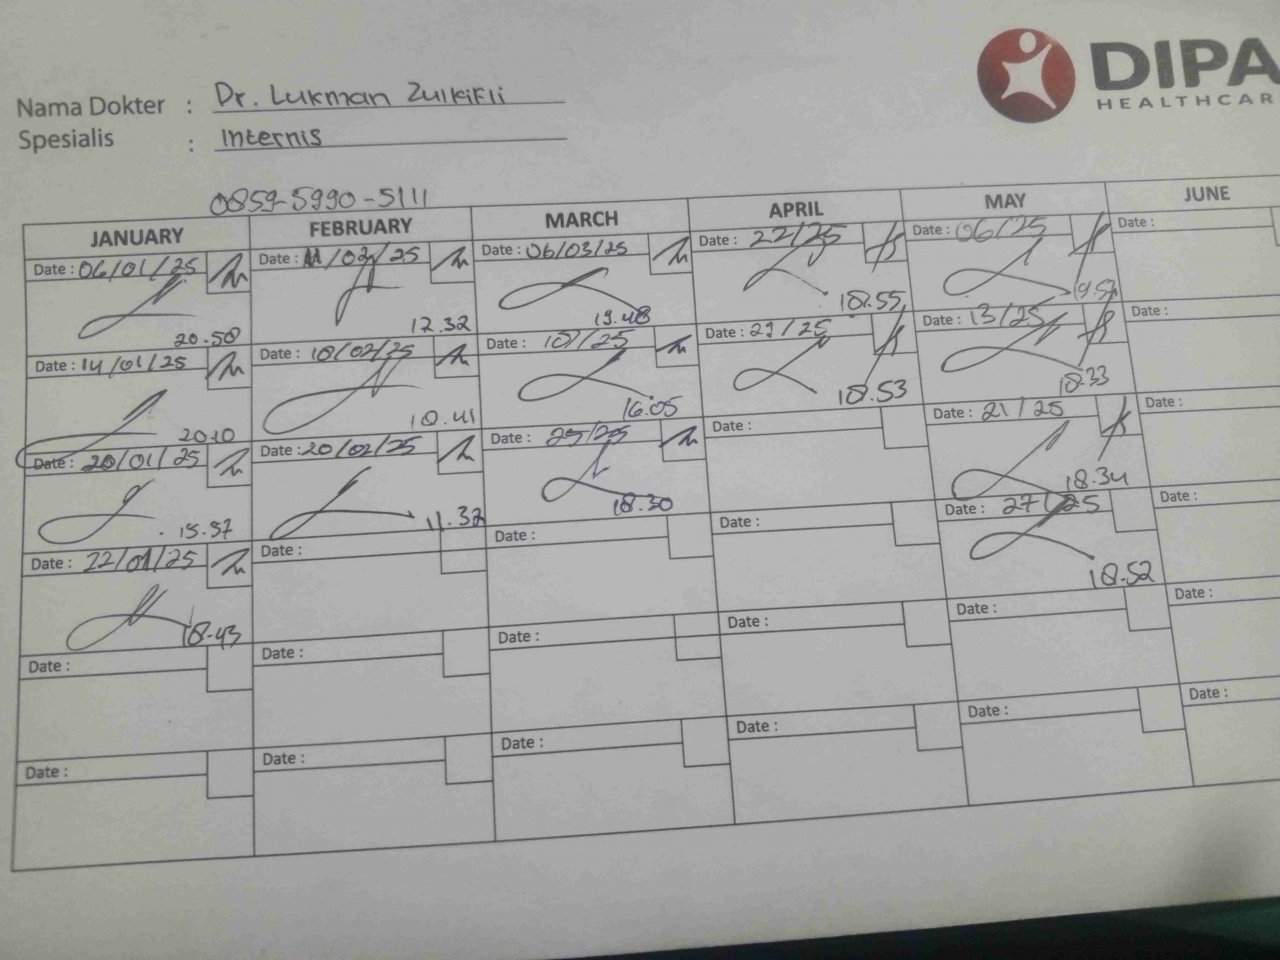 DIPA
HEALTHCAR
Nama Dokter : Dr. Lukman Zulkifli
Spesialis : Internis
0859-5990-5111
JANUARY FEBRUARY MARCH APRIL MAY JUNE
Date : 06/01/25 Date : 11/02/25 Date : 06/03/25 Date : 22/25 Date : 06/25 Date :
20.50 12.32 19.48 18.55
Date : 14/01/25 Date : 18/02/25 Date : Date : 29/25 Date : 13/25 Date :
20.10 18.41 16.05 18.53 18.33
Date : 20/01/25 Date : 20/02/25 Date : 25/25 Date : Date : 21/25 Date :
15.37 11.32 18.30 18.34
Date : 22/01/25 Date : Date : Date : Date : 27/25 Date :
18.43 18.52
Date : Date : Date : Date : Date : Date :
Date : Date : Date : Date : Date : Date :